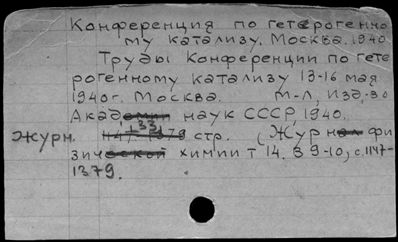 Конференция по гетерогенно
му катализу. Москва. 1940
Труды Конференции по гете
рогенному катализу 13-16 мая
1940г. Москва. М-Л, Изд-во
Академии наук СССР, 1940.
133
Журн. 1147-1379 стр. (Журнал фи
зической химии т 14. В 9-10, с.1147-
1379.